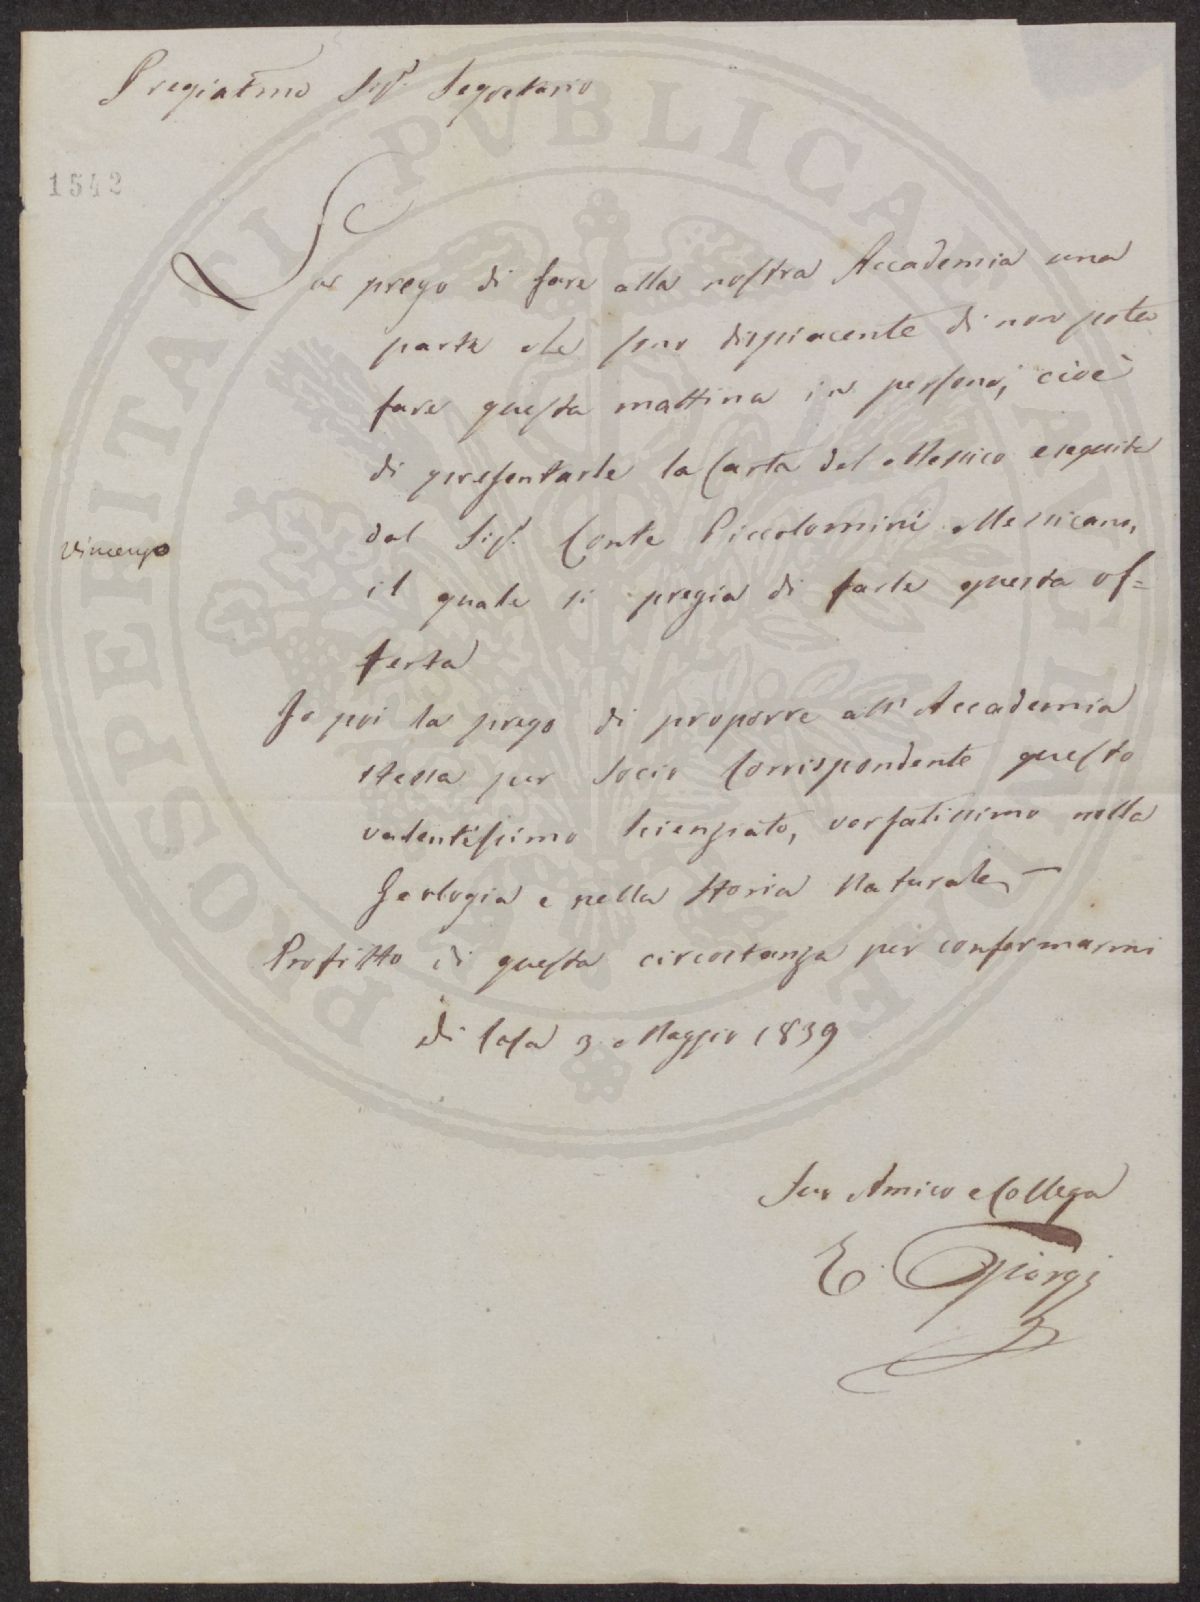 Pregiatmo Sigr. Segretario
1542
La prego di fare alla nostra Accademia una
parte che sono dispiacente di non poter
fare questa mattina in persona, cioè
di presentarle la Carta del Messico eseguita
dal Sigr. Conte Piccolomini Messicano,
Vincenzo
il quale si pregia di farle questa of=
ferta
Io poi la prego di proporre all'Accademia
stessa per Socio Corrispondente questo
valentissimo Scienziato, versatissimo nella
Geologia e nella Storia Naturale,
Profitto di questa circostanza per confermarmi
Di Casa 3 Maggio 1839
Suo Amico e Collega
E. Giorgi
PROSPERITATI PVBLICAE AVGENDAE